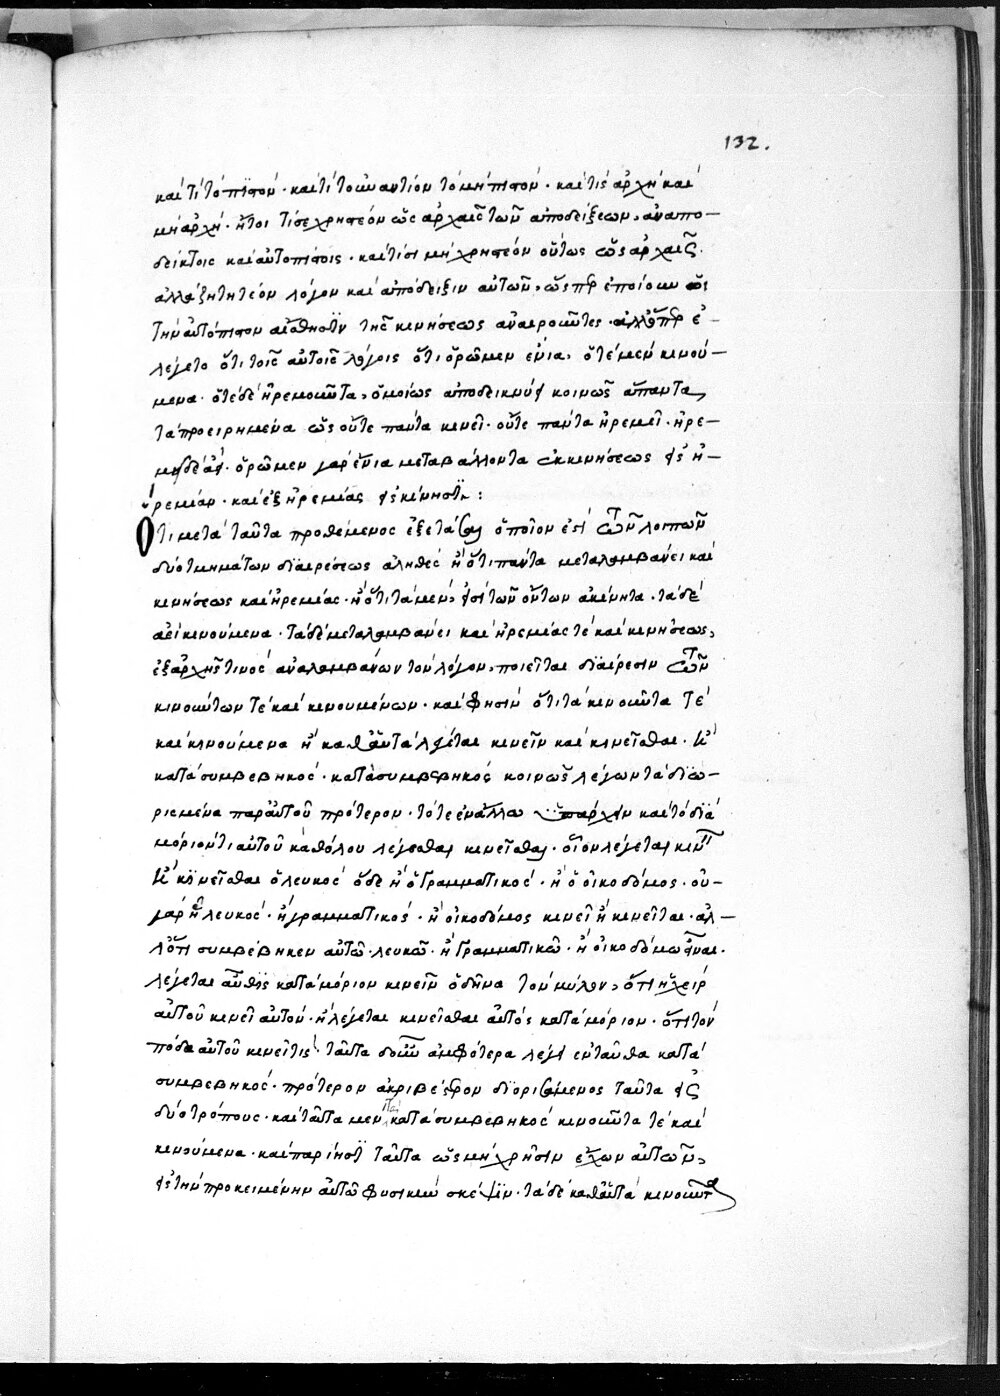 132.
καὶ τί τὸ πιστόν· καὶ τί τοὐναντίον τὸ μὴ πιστόν· καὶ τίς ἀρχὴ καὶ
μὴ ἀρχή· ἤτοι τίσι χρηστέον ὡς ἀρχαῖς τῶν ἀποδείξεων, ἀναπο-
δείκτοις καὶ αὐτοπίστοις· καὶ τίσι μὴ χρηστέον οὕτως ὡς ἀρχαῖς
ἀλλὰ ζητητέον λόγον καὶ ἀπόδειξιν αὐτῶν, ὥσπερ ἐποίουν οἱ
τὴν αὐτόπιστον αἴσθησιν τῆς κινήσεως ἀναιροῦντες· ἀλλ' ὅπερ ἐ-
λέγετο ὅτι τοῖς αὐτοῖς λόγοις ὅτι ὁρῶμεν ἔνια, ὁτὲ μὲν κινού-
μενα· ὁτὲ δὲ ἠρεμοῦντα, ὁμοίως ἀποδεικνύει κοινῶς ἅπαντα
τὰ προειρημένα ὡς οὔτε πάντα κινεῖ· οὔτε πάντα ἠρεμεῖ· ἠρε-
μεῖ δὲ ἀεί· ὁρῶμεν γὰρ ἔνια μεταβάλλοντα ἐκ κινήσεως εἰς ἠ-
ρεμίαν· καὶ ἐξ ἠρεμίας εἰς κίνησιν:
Ὅτι μετὰ ταῦτα προθέμενος ἐξετάσαι ὁποῖον ἐστὶ τῶν λοιπῶν
δύο τμημάτων διαιρέσεως ἀληθὲς ἢ ὅτι πάντα μεταλαμβάνει καὶ
κινήσεως καὶ ἠρεμίας· ἢ ὅτι τὰ μέν, εἰσὶ τῶν ὄντων ἀκίνητα· τὰ δὲ
ἀεὶ κινούμενα· τὰ δὲ μεταλαμβάνει καὶ ἠρεμίας τὲ καὶ κινήσεως,
ἐξ ἀρχῆς τινὸς ἀναλαμβάνων τὸν λόγον, ποιεῖται διαίρεσιν τῶν
κινούντων τὲ καὶ κινουμένων· καὶ φησὶν ὅτι τὰ κινοῦντα τὲ
καὶ κινούμενα ἢ καθ' αὑτὰ λέγεται κινεῖν καὶ κινεῖσθαι· ἢ
κατὰ συμβεβηκός· κατὰ συμβεβηκὸς κοινῶς λέγων τὰ διω-
ρισμένα παρ' αὐτοῦ πρότερον· τότε ἐν ἄλλω ὑπάρχειν καὶ τὸ διὰ
μόριόν τι αὐτοῦ καθόλου λέγεσθαι κινεῖσθαι· οἷον λέγεται κινεῖν
ἢ κινεῖσθαι ὁ λευκὸς ὅδε ἢ ὁ γραμματικός· ἢ ὁ οἰκοδόμος· οὐ
γὰρ ἢ λευκός· ἢ γραμματικός· ἢ οἰκοδόμος κινεῖ ἢ κινεῖται· ἀλ-
λ' ὅτι συμβέβηκεν αὐτῶ· λευκῶ· ἢ γραμματικῶ· ἢ οἰκοδόμω εἶναι·
λέγεται αὖθις κατὰ μόριον κινεῖν ὁ δεῖνα τὸν μύλον, ὅτι ἡ χεὶρ
αὐτοῦ κινεῖ αὐτόν· ἢ λέγεται κινεῖσθαι αὐτὸς κατὰ μόριον· ὅτι τὸν
πόδα αὐτοῦ κινεῖ τίς· ταῦτα δ' οὖν ἀμφότερα λέγει ἐνταῦθα κατὰ
συμβεβηκός· πρότερον ἀκριβέστερον διορισάμενος ταῦτα εἰς
δύο τρόπους· καὶ ταῦτα μὲν τὰ κατὰ συμβεβηκὸς κινοῦντα τὲ καὶ
κινούμενα· καὶ παρίησι ταῦτα ὡς μὴ χρῆσιν ἔχων αὐτῶν,
εἰς τὴν προκειμένην αὐτῶ φυσικὴν σκέψιν· τὰ δὲ καθ' αὑτὰ κινοῦντα